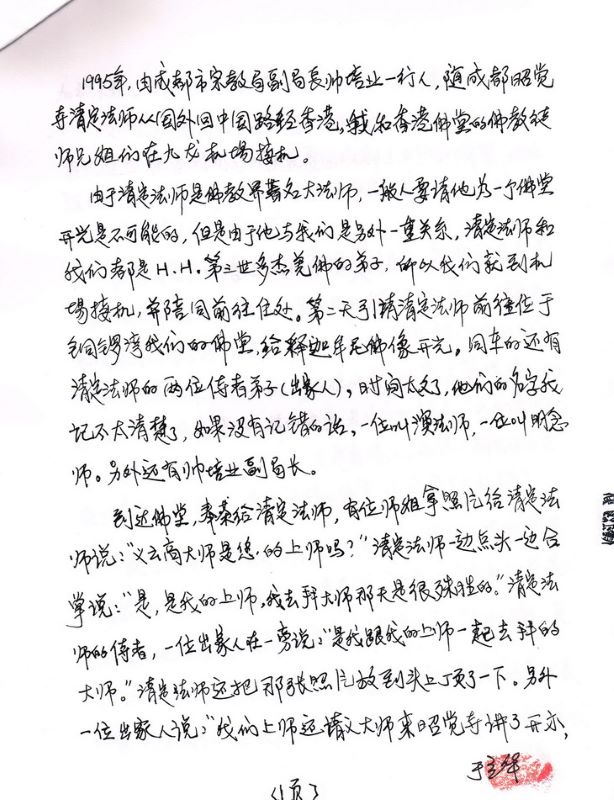 1995年,由成都市宗教局副局長帅培业一行人,随成都昭觉
寺清定法师从国外回中国路经香港,我和香港佛堂的佛教徒
师兄姐们在九龙机場接机。
由于清定法师是佛教界著名大法师,一般人要请他为一个佛堂
开光是不可能的,但是由于他与我们是另外一重关系,清定法师和
我们都是H.H.第三世多杰羌佛的弟子,所以我们就到机
場接机,并陪同前往住处。第二天引请清定法师前往位于
铜锣湾我们的佛堂,给释迦牟尼佛像开光。同车的还有
清定法师的两位侍者弟子(出家人),时间太久了,他们的名字我
记不太清楚了,如果没有记错的话,一位叫演法师,一位叫明念
师。另外还有帅培业副局长。
到达佛堂,奉茶给清定法师,有位师姐拿照片给清定法
师说:“义云高大师是您的上师吗?”清定法师一边点头一边合
掌说:“是,是我的上师,我去拜大师那天是很殊胜的。”清定法
师的侍者,一位出家人在一旁说:“是我跟我的上师一起去拜的
大师。”清定法师还把那张照片放到头上顶了一下。另外
一位出家人说:“我们上师还请义大师来昭觉寺讲了开示,
(1页)